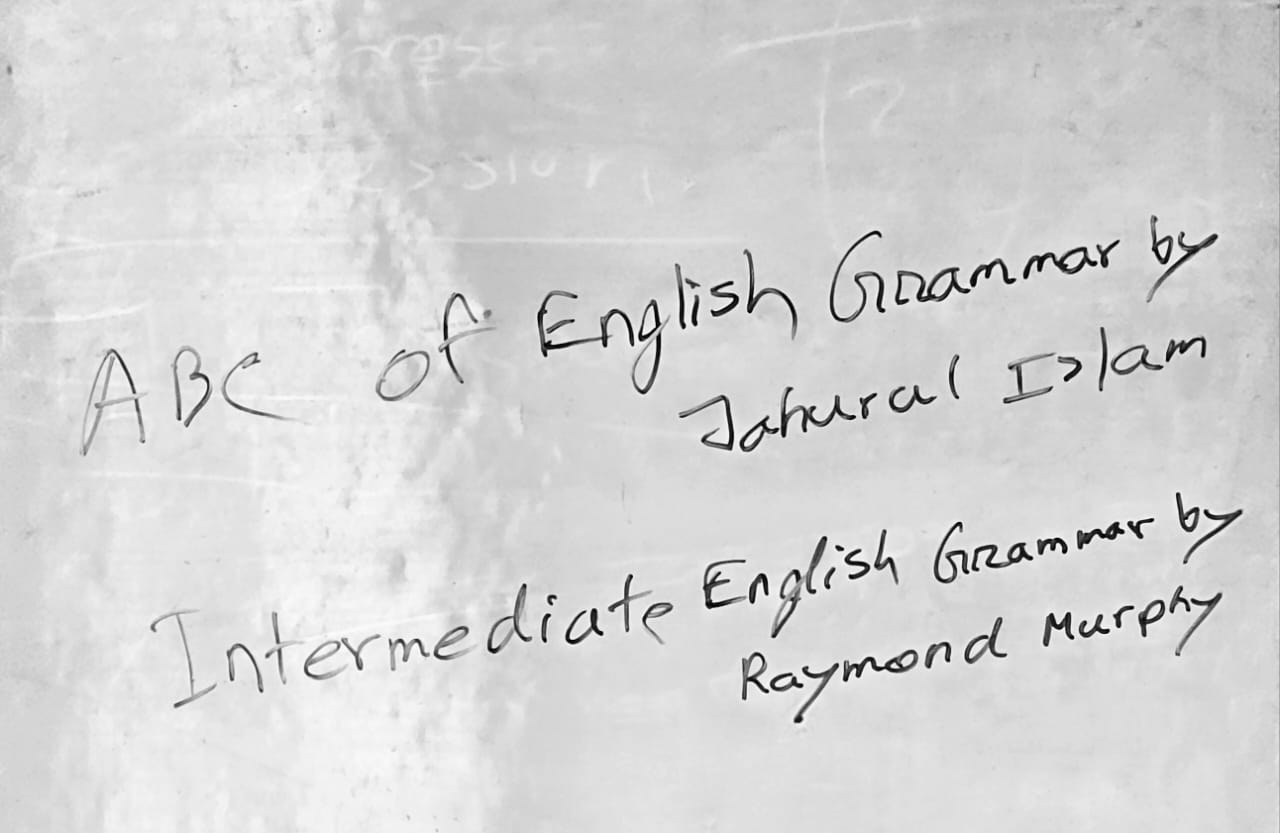 ABC of English Grammar by
Jahurul Islam
Intermediate English Grammar by
Raymond Murphy